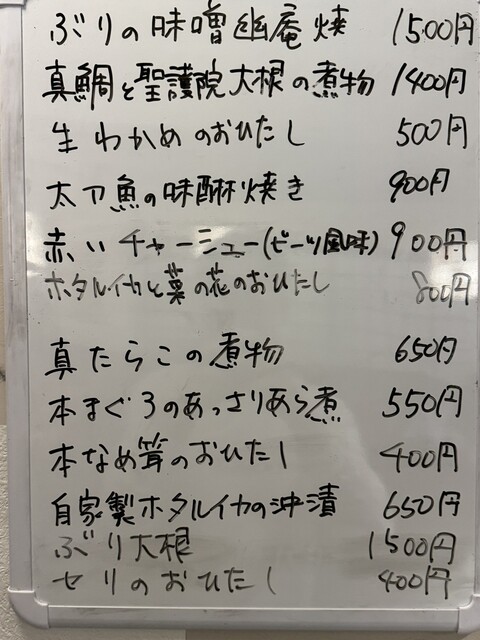 ぶりの味噌幽庵焼 1500円
真鯛と聖護院大根の煮物 1400円
生わかめのおひたし 500円
太刀魚の味醂焼き 900円
赤いチャーシュー(ビーツ風味) 900円
ホタルイカと菜の花のおひたし 800円
真たらこの煮物 650円
本まぐろのあっさりあら煮 550円
本なめ茸のおひたし 400円
自家製ホタルイカの沖漬 650円
ぶり大根 1500円
セリのおひたし 400円